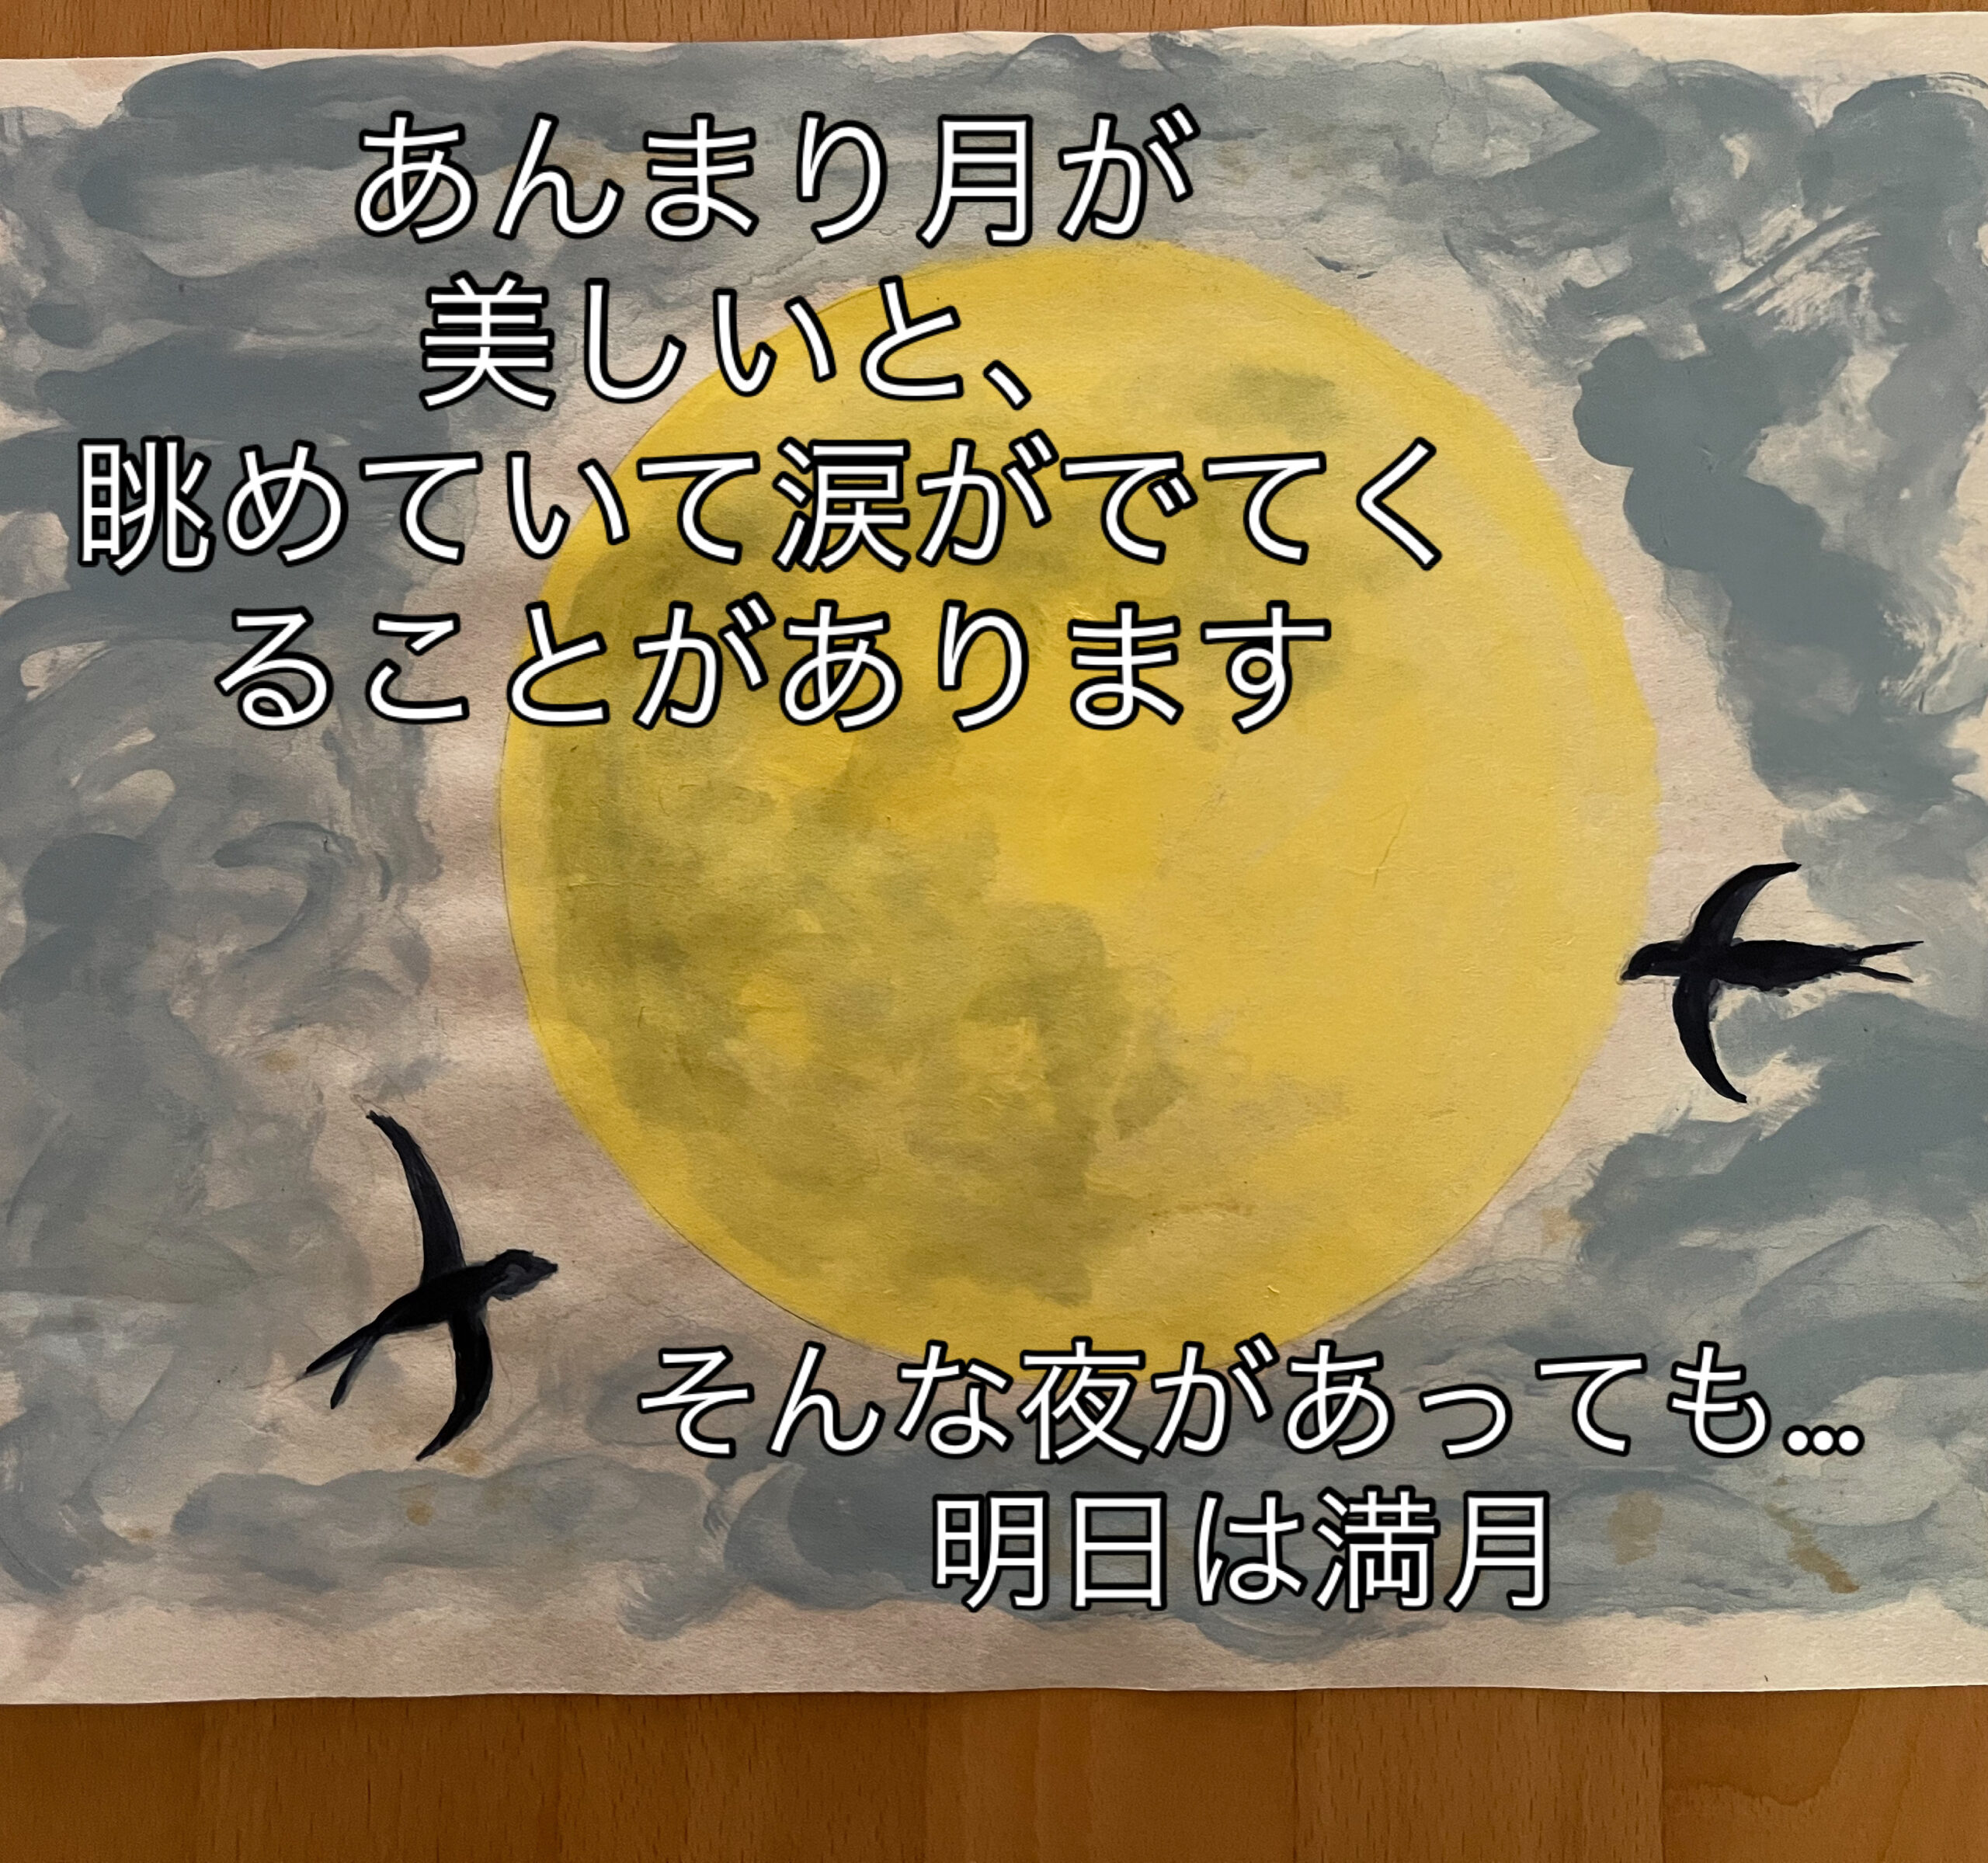 あんまり月が
美しいと、
眺めていて涙がでてく
ることがあります
そんな夜があっても…
明日は満月